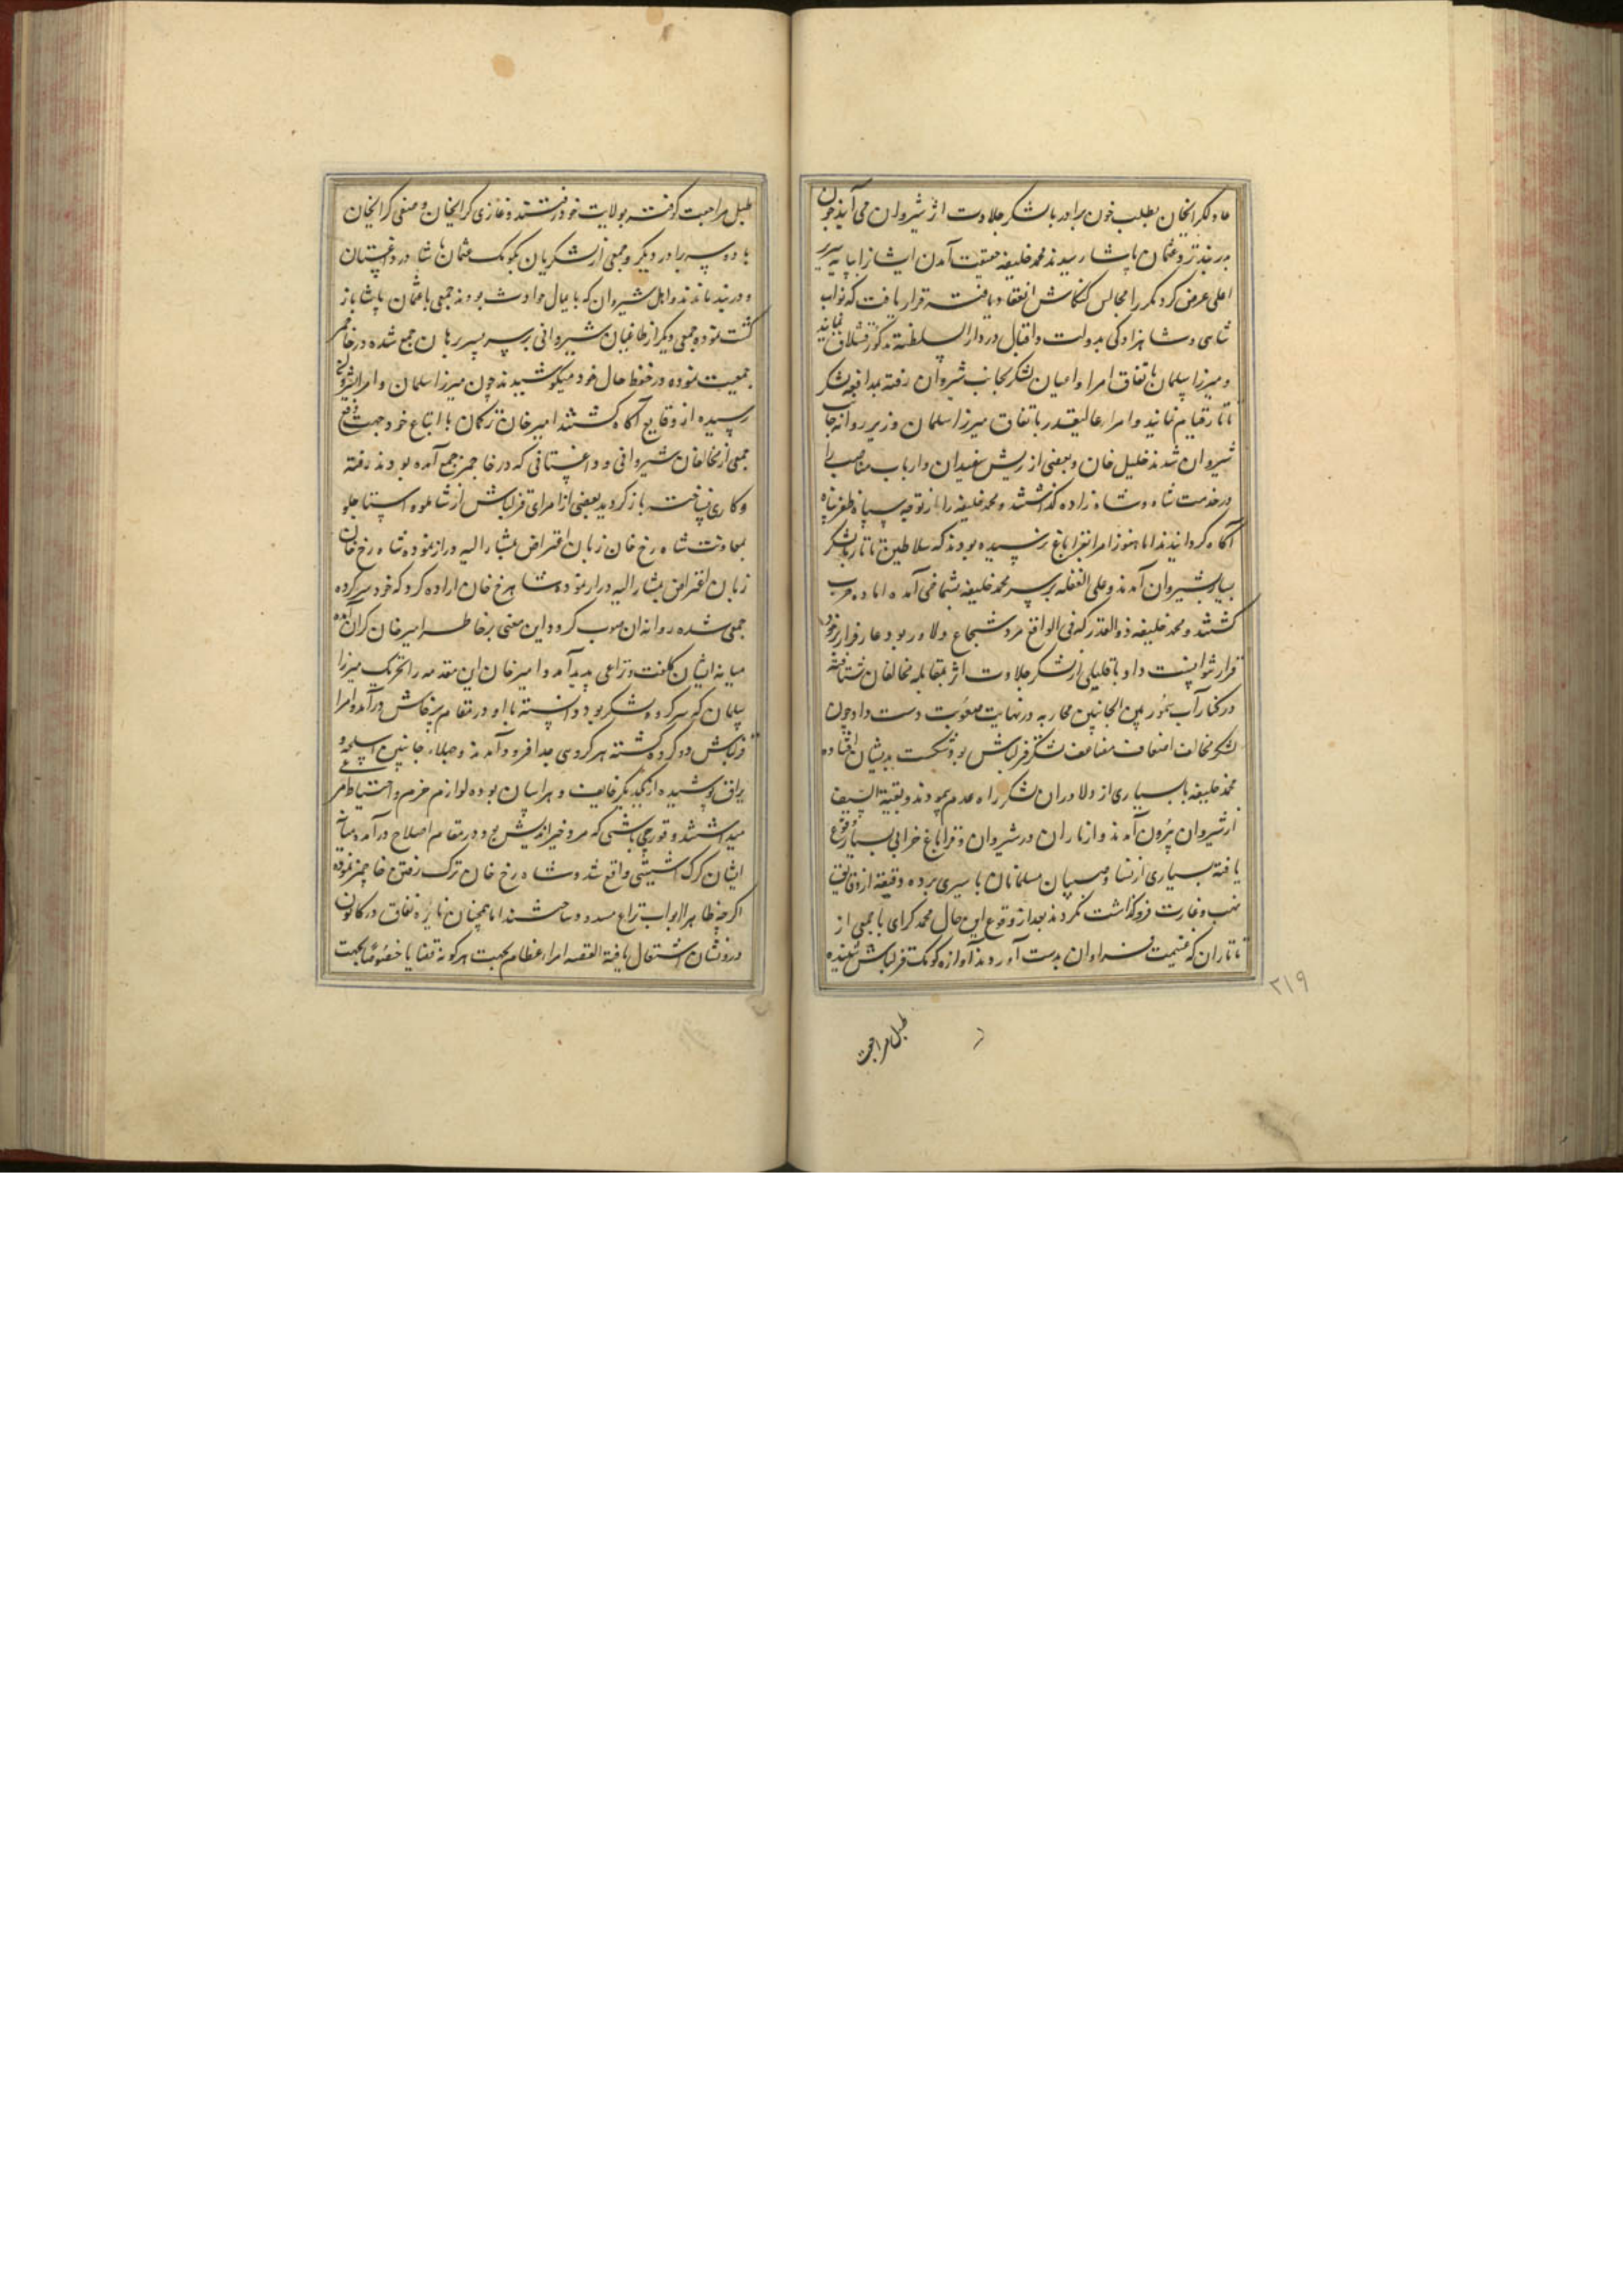 عادلکرایخان بطلب خون برادر با لشکر جلادت اثر بشیروان می آیند چون
بدربند نزد عثمان پاشا رسیدند محمد خلیفه حقیقت آمدن ایشانرا بپایه سریر
اعلی عرض کرد مکررا مجالس کنکاش انعقاد یافته قرار یافت که نواب
شاهی و شاهزادگی بدولت و اقبال در دار السلطنه مذکور قشلاق نمایند
و میرزا سلمان باتفاق امرا و اعیان لشکر بجانب شیروان رفته بمدافعه لشکر
تاتار قیام نمایند و امراء عالیقدر باتفاق میرزا سلمان وزیر روانه جانب
شیروان شدند خلیل خان و بعضی از ریش سفیدان و ارباب مناصب را
در خدمت شاه و شاه زاده گذاشتند و محمد خلیفه را از توجه سپاه ظفر پناه
آگاه گردانیدند اما هنوز امرا بقراباغ نرسیده بودند که سلاطین تاتار با لشکر
بسیار بشیروان آمدند و علی الغفله بر سر محمد خلیفه بشماخی آمده اماده حرب
گشتند و محمد خلیفه ذو القدر که فی الواقع مرد شجاع دلاور بود عار فرار بر خود
قرار نتوانست داد با قلیلی از لشکر جلادت اثر بمقابله مخالفان شتافته
در کنار آب بین الجانبین محاربه در نهایت صعوبت دست داد چون
لشکر مخالف اضعاف مضاعف لشکر قزلباش بود شکست بدیشان افتاده
محمد خلیفه با بسیاری از دلاوران لشکر راه عدم پیمودند و بقیه السیف
از شیروان بیرون آمدند و از تاتاران در شیروان و قراباغ خرابی بسیار وقوع
یافته بسیاری از نسا و صبیان مسلمانان باسیری برده دقیقه از دقایق
نهب و غارت فروگذاشت نکردند بعد از وقوع این حال محمد کرای با جمعی از
تاتاران که غنیمت فراوان بدست آوردند آوازه کومک قزلباش شنیده
۲۱۹
طبل مراجعت
طبل مراجعت کوفته بولایت خود رفتند و غازی کرایخان و صفی کرایخان
با دو سه برادر دیگر و جمعی از لشکریان بکومک عثمان پاشا در داغستان
و دربند ماندند و اهل شیروان که بامیال حوادث بودند جمعی با عثمان پاشا باز
گشت نموده جمعی دیگر از طاغیان شیروانی بر سر پسر برهان جمع شده در خاچمز
جمعیت نموده در حفظ حال خود میکوشیدند چون میرزا سلمان و امرا بشیروان
رسیده از وقایع آگاه گشتند امیر خان ترکمان با اتباع خود جهت دفع
جمعی از مخالفان شیروانی و داغستانی که در خاچمز جمع آمده بودند رفته
و کاری نساخته باز گردید بعضی از امرای قزلباش از شاملو و استاجلو
بمعاونت شاه رخ خان زبان اعتراض بمشار الیه دراز نموده شاه رخ خان
زبان اعتراض بمشار الیه دراز نموده شاهرخ خان اراده کرد که خود سر کرده
جمعی شده روانه ان صوب گردد این معنی بر خاطر امیر خان گران آمده
میانه ایشان کلفت و نزاعی پدید آمد و امیر خان این مقدمه را تحریک میرزا
سلمان که سر کرده لشکر بود دانسته با او در مقام پرخاش درآمده امرا
قزلباش دو گروه گشته هر گروهی جدا فرود آمدند و جبلا جانبین اسلحه و
یراق پوشیده از یکدیگر خایف و هراسان بوده لوازم حزم و احتیاط مرعی
میداشتند و قورچی باشی که مرد خیراندیش بود در مقام اصلاح درآمده میانه
ایشان گرگ آشتی واقع شد و شاه رخ خان ترک رفتن خاچمز نموده
اگرچه ظاهرا ابواب نزاع مسدود ساختند اما همچنان نایره نفاق در کانون
درونشان اشتعال یافته القصه امراء عظام بجهت هر گونه قضایا خصوصا بجهت